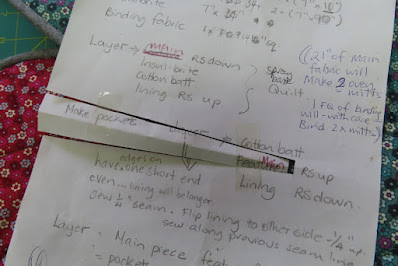 Insulbrite 7"x 34" 2 - (7"x 10")
Binding fabric
Layer → main RS down
Insulbrite
Cotton batt
lining RS up
spray baste
Quilt
((21" of main
fabric will
Make 2 oven
mitts
1 FQ of binding
will - with care
Bind 2x mitts)
Make pockets
Layer → Cotton batt
Feature Main RS up
Lining RS down.
edges on
have one short end
even... lining will be longer.
Sew 1/4" seam. Flip lining to other side - 1/4" up.
sew along previous seam line
Layer: Main piece
= pockets